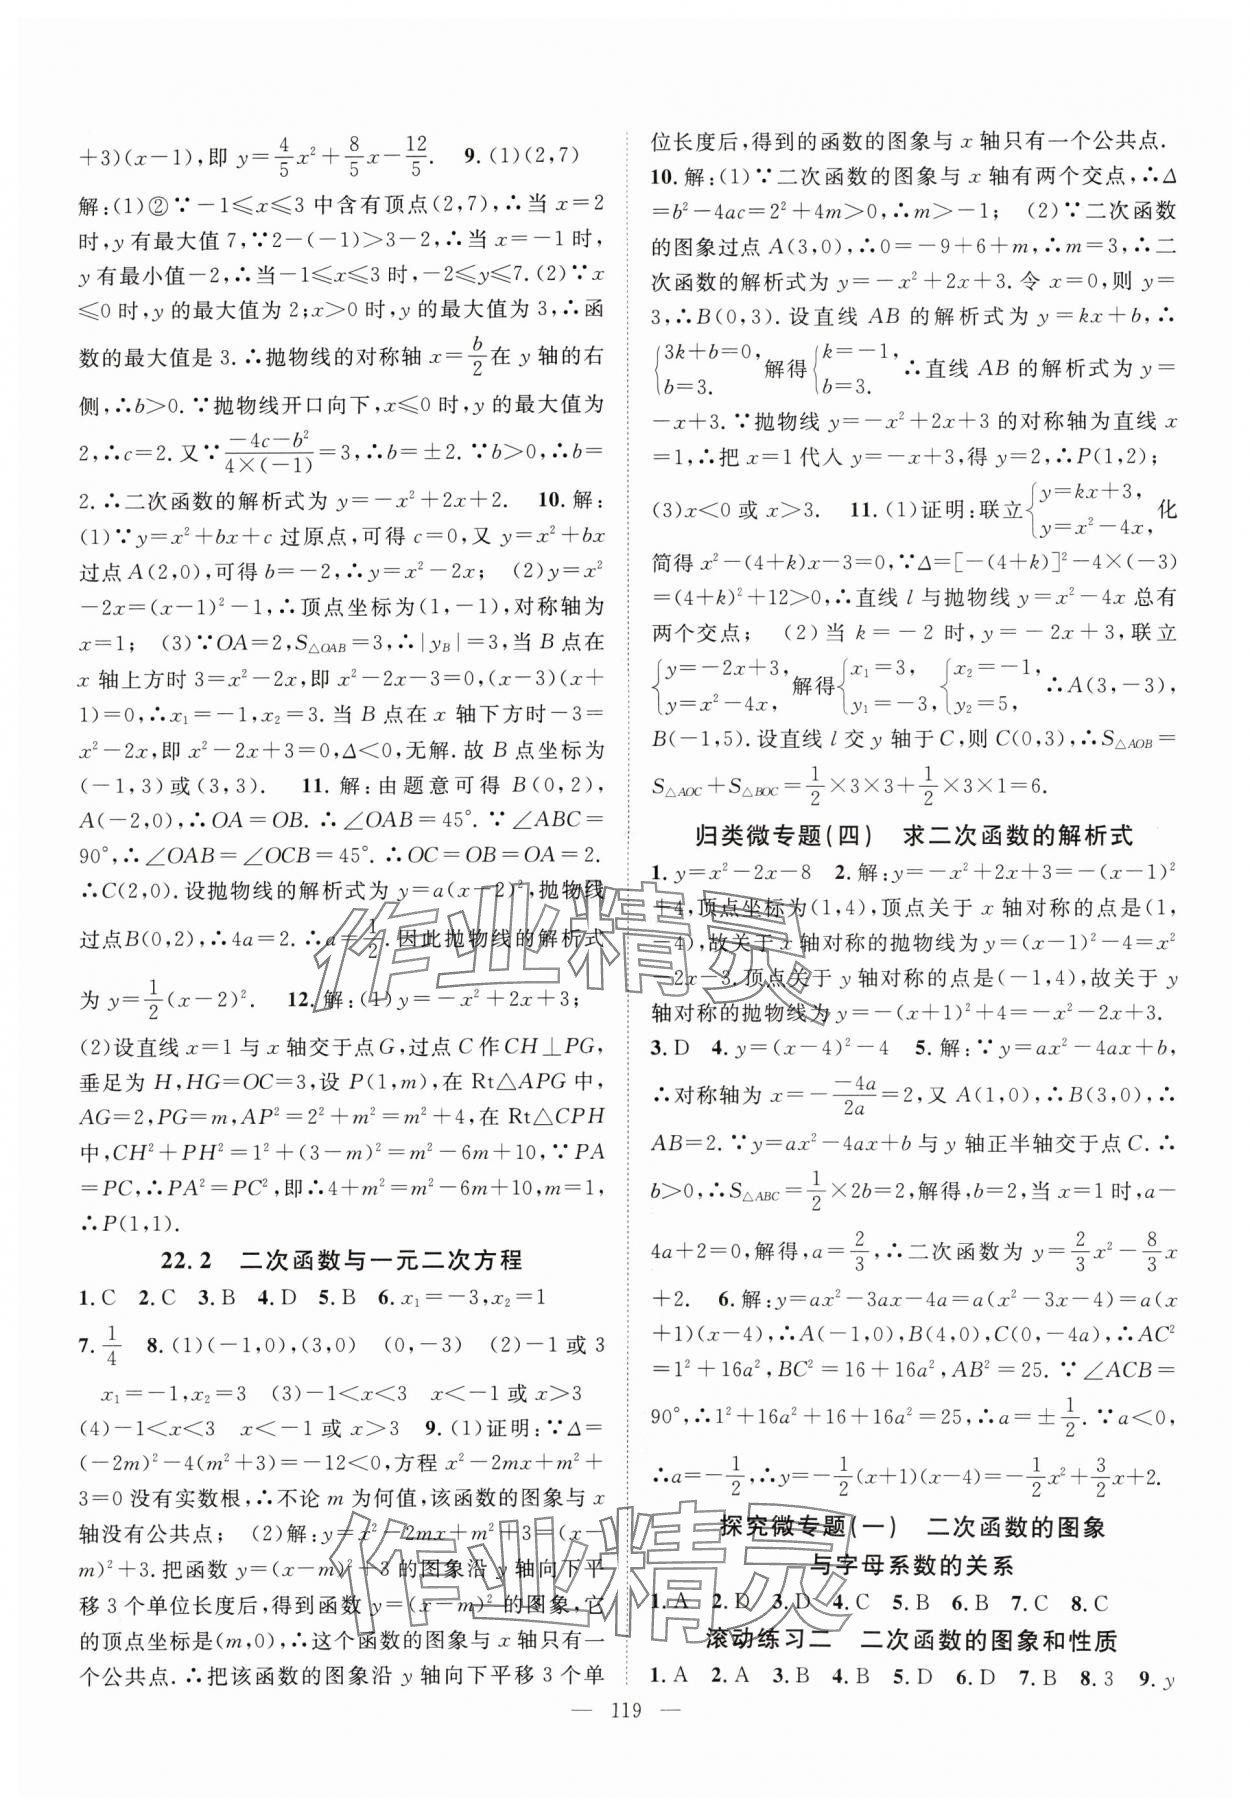 +3)(x-1),即 y=4/5x²+8/5x-12/5. 9.(1)(2,7)
解:(1)②∵-1≤x≤3 中含有顶点(2,7),∴当 x=2
时,y 有最大值 7,∵2-(-1)>3-2,∴当 x=-1 时,
y 有最小值-2,∴当-1≤x≤3 时,-2≤y≤7.(2)∵x
≤0 时,y 的最大值为 2;x>0 时,y 的最大值为 3,∴函
数的最大值是 3.∴抛物线的对称轴 x=b/2 在 y 轴的右
侧,∴b>0.∵抛物线开口向下,x≤0 时,y 的最大值为
2,∴c=2.又∵(-4c-b²)/(4×(-1))=3,∴b=±2.∵b>0,∴b=
2.∴二次函数的解析式为 y=-x²+2x+2. 10.解:
(1)∵y=x²+bx+c 过原点,可得 c=0,又 y=x²+bx
过点 A(2,0),可得 b=-2,∴y=x²-2x; (2)y=x²
-2x=(x-1)²-1,∴顶点坐标为(1,-1),对称轴为
x=1; (3)∵OA=2,S△OAB=3,∴|yB|=3,当 B 点在
x 轴上方时 3=x²-2x,即 x²-2x-3=0,(x-3)(x+
1)=0,∴x₁=-1,x₂=3.当 B 点在 x 轴下方时-3=
x²-2x,即 x²-2x+3=0,Δ<0,无解.故 B 点坐标为
(-1,3)或(3,3). 11.解:由题意可得 B(0,2),
A(-2,0),∴OA=OB.∴∠OAB=45°.∵∠ABC=
90°,∴∠OAB=∠OCB=45°.∴OC=OB=OA=2.
∴C(2,0).设抛物线的解析式为 y=a(x-2)²,抛物线
过点B(0,2),∴4a=2.∴a=1/2.因此抛物线的解析式
为 y=1/2(x-2)². 12.解:(1)y=-x²+2x+3;
(2)设直线 x=1 与 x 轴交于点 G,过点 C 作 CH⊥PG,
垂足为 H,HG=OC=3,设 P(1,m),在 Rt△APG 中,
AG=2,PG=m,AP²=2²+m²=m²+4,在 Rt△CPH
中,CH²+PH²=1²+(3-m)²=m²-6m+10,∵PA
=PC,∴PA²=PC²,即∴4+m²=m²-6m+10,m=1,
∴P(1,1).
22.2 二次函数与一元二次方程
1.C 2.C 3.B 4.D 5.B 6.x₁=-3,x₂=1
7.1/4 8.(1)(-1,0),(3,0) (0,-3) (2)-1 或 3
x₁=-1,x₂=3 (3)-1<x<3 x<-1 或 x>3
(4)-1<x<3 x<-1 或 x>3 9.(1)证明:∵Δ=
(-2m)²-4(m²+3)=-12<0,方程 x²-2mx+m²+
3=0 没有实数根,∴不论 m 为何值,该函数的图象与 x
轴没有公共点; (2)解:y=x²-2mx+m²+3=(x-
m)²+3.把函数 y=(x-m)²+3 的图象沿 y 轴向下平
移 3 个单位长度后,得到函数 y=(x-m)² 的图象,它
的顶点坐标为(m,0),∴这个函数的图象与 x 轴只有一
个公共点.∴把该函数的图象沿 y 轴向下平移 3 个单
位长度后,得到的函数的图象与 x 轴只有一个公共点.
10.解:(1)∵二次函数的图象与 x 轴有两个交点,∴Δ
=b²-4ac=2²+4m>0,∴m>-1; (2)∵二次函数
的图象过点 A(3,0),∴0=-9+6+m,∴m=3,∴二
次函数的解析式为 y=-x²+2x+3.令 x=0,则 y=
3,∴B(0,3).设直线 AB 的解析式为 y=kx+b,∴
{3k+b=0, b=3. 解得{k=-1, b=3. ∴直线 AB 的解析式为 y=
-x+3.∵抛物线 y=-x²+2x+3 的对称轴为直线 x
=1,∴把 x=1 代入 y=-x+3,得 y=2,∴P(1,2);
(3)x<0 或 x>3. 11.(1)证明:联立{y=kx+3, y=x²-4x, 化
简得 x²-(4+k)x-3=0,∵Δ=[-(4+k)]²-4×(-3)
=(4+k)²+12>0,∴直线 l 与抛物线 y=x²-4x 总有
两个交点; (2)当 k=-2 时,y=-2x+3,联立
{y=-2x+3, y=x²-4x, 解得{x₁=3, y₁=-3, {x₂=-1, y₂=5, ∴A(3,-3),
B(-1,5).设直线 l 交 y 轴于 C,则 C(0,3),∴S△AOB=
S△AOC+S△BOC=1/2×3×3+1/2×3×1=6.
归类微专题(四) 求二次函数的解析式
1.y=x²-2x-8 2.解:y=-x²+2x+3=-(x-1)²
+4,顶点坐标为(1,4),顶点关于 x 轴对称的点是(1,
-4),故关于 x 轴对称的抛物线为 y=(x-1)²-4=x²
-2x-3.顶点关于 y 轴对称的点是(-1,4),故关于 y
轴对称的抛物线为 y=-(x+1)²+4=-x²-2x+3.
3.D 4.y=(x-4)²-4 5.解:∵y=ax²-4ax+b,
∴对称轴为 x=-(-4a)/(2a)=2,又 A(1,0),∴B(3,0),∴
AB=2.∵y=ax²-4ax+b 与 y 轴正半轴交于点 C.∴
b>0,∴S△ABC=1/2×2b=2,解得,b=2,当 x=1 时,a-
4a+2=0,解得,a=2/3,∴二次函数解析式为 y=2/3x²-8/3x
+2. 6.解:y=ax²-3ax-4a=a(x²-3x-4)=a(x
+1)(x-4),∴A(-1,0),B(4,0),C(0,-4a),∴AC²
=1²+16a²,BC²=16+16a²,AB²=25.∵∠ACB=
90°,∴1²+16a²+16+16a²=25,∴a=±1/2.∵a<0,
∴a=-1/2,∴y=-1/2(x+1)(x-4)=-1/2x²+3/2x+2.
探究微专题(一) 二次函数的图象
与字母系数的关系
1.A 2.D 3.D 4.C 5.B 6.B 7.C 8.C
滚动练习二 二次函数的图象和性质
1.A 2.A 3.B 4.B 5.D 6.D 7.B 8.3 9.y
— 119 —
作业精灵
作业精灵